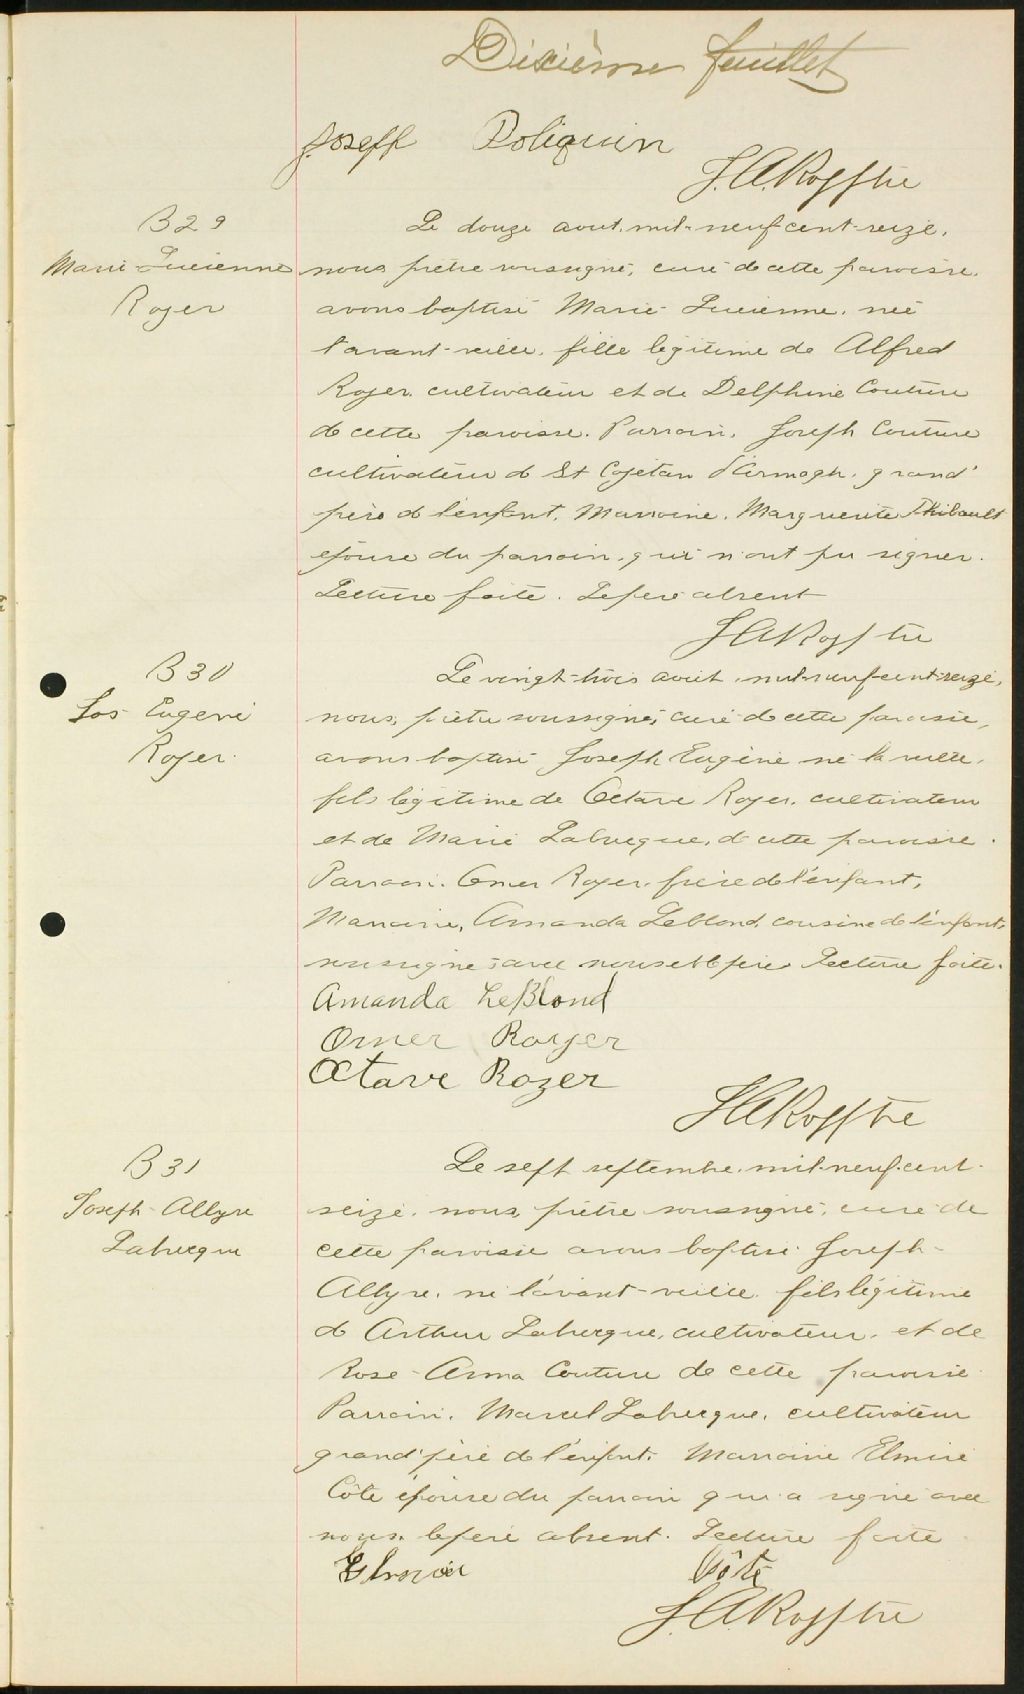 Dixième feuillet
Joseph Poliquin
J. A. Roy Ptre
B 29
Marie-Lucienne
Roger
Le douze aout, mil-neuf cent-seize,
nous prêtre soussigné, curé de cette paroisse,
avons baptisé Marie-Lucienne, née
l'avant-veille, fille légitime de Alfred
Roger, cultivateur et de Delphine Couture
de cette paroisse. Parrain, Joseph Couture
cultivateur de St Cajetan d'Armagh, grand'
père de l'enfant, Marraine, Marguerite Thibault
épouse du parrain, qui n'ont pu signer.
Lecture faite. Le père absent
J A Roy Ptre
B 30
Jos Eugène
Roger
Le vingt-trois août, mil-neuf-cent-seize,
nous, prêtre soussigné, curé de cette paroisse,
avons baptisé Joseph Eugène né la veille,
fils légitime de Octave Roger, cultivateur
et de Marie Labrecque, de cette paroisse.
Parrain, Omer Roger, frère de l'enfant,
Marraine, Amanda Leblond, cousine de l'enfant,
soussignés avec nous et le père Lecture faite.
Amanda LeBlond
Omer Royer
Octave Rozer
J A Roy Ptre
B 31
Joseph-Allyre
Labrecque
Le sept septembre, mil-neuf-cent-
seize, nous prêtre soussigné, curé de
cette paroisse avons baptisé Joseph-
Allyre, né l'avant-veille, fils légitime
de Arthur Labrecque, cultivateur, et de
Rose-Anna Couture de cette paroisse
Parrain, Marcel Labrecque, cultivateur
grand'père de l'enfant, Marraine Elmire
Côté épouse du parrain qui a signé avec
nous, le père absent. Lecture faite
Elmire Côté
J. A. Roy Ptre